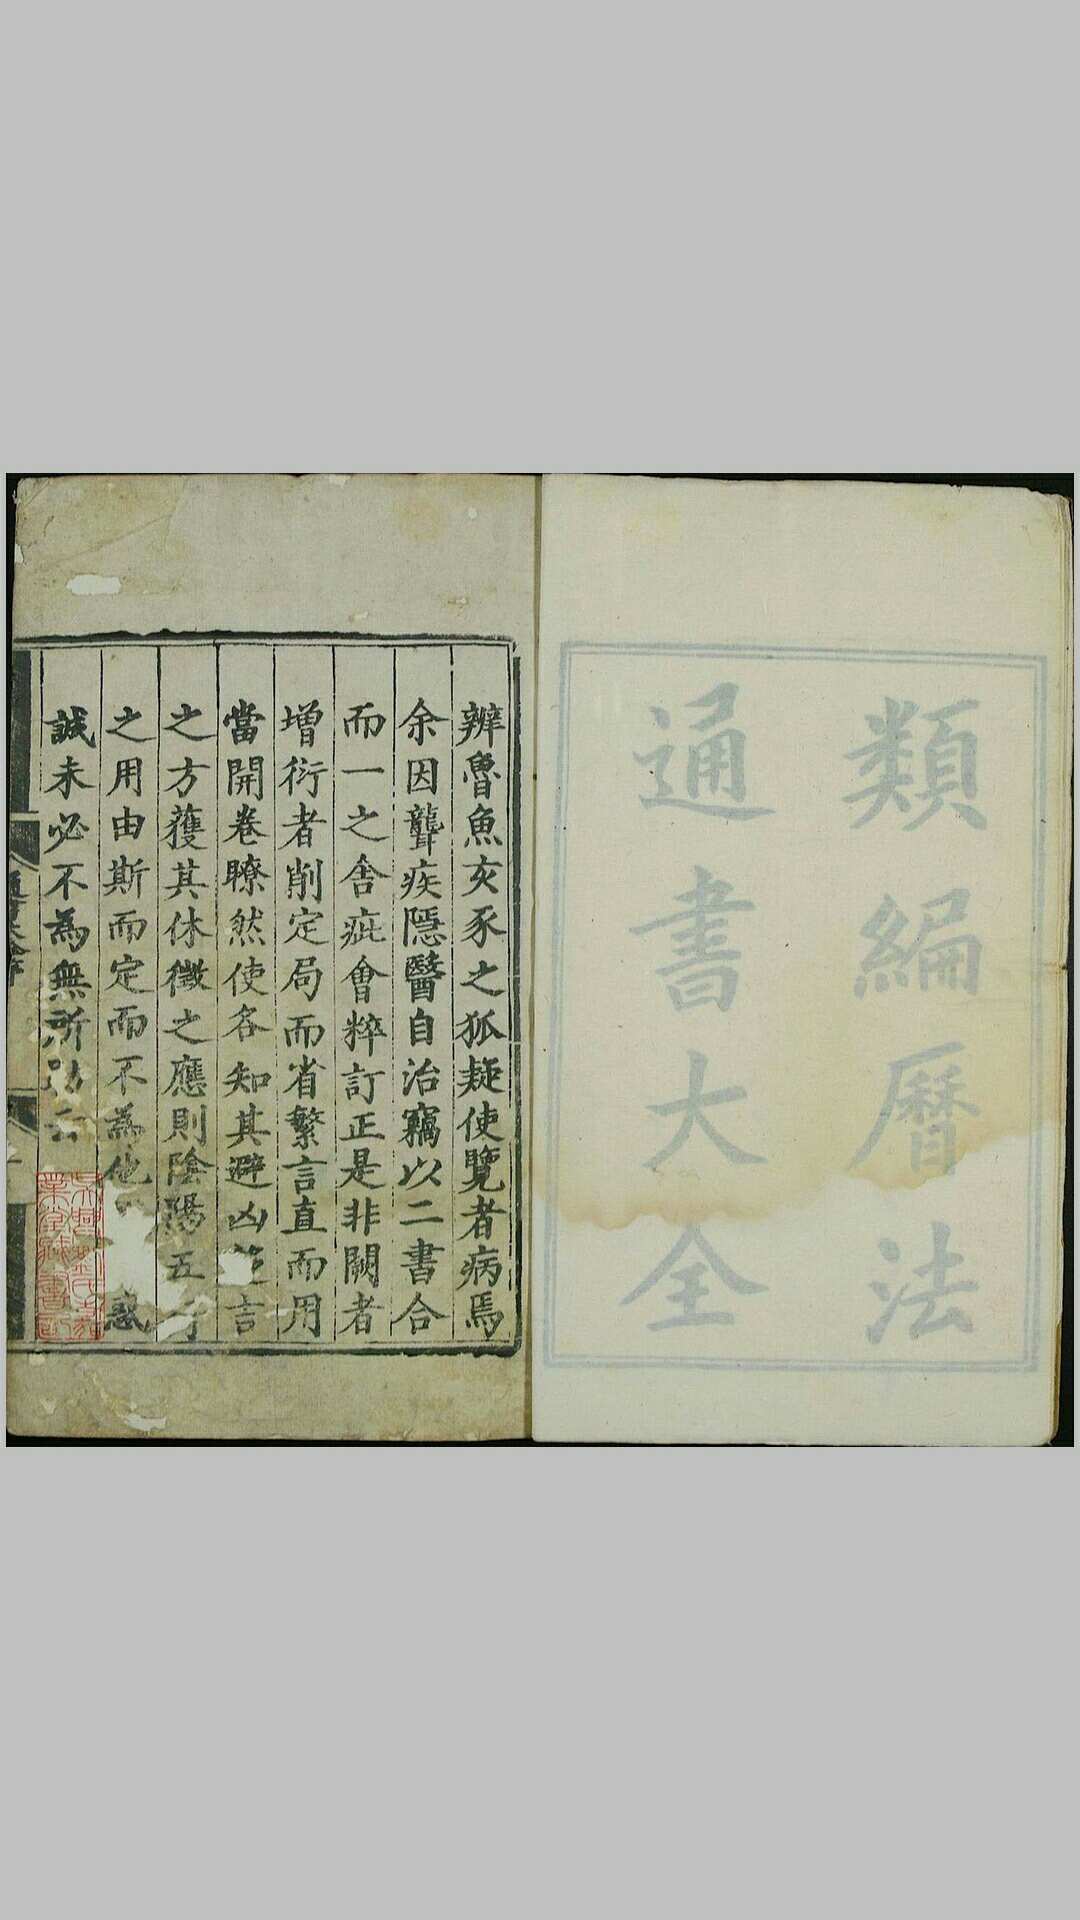 類編曆法
通書大全
辨魯魚亥豕之狐疑使覽者病焉
余因聾疾隱醫自治竊以二書合
而一之舍疵會粹訂正是非闕者
增衍者削定局而省繁言直而用
當開卷瞭然使各知其避凶言
之方獲其休徵之應則陰陽五行
之用由斯而定而不為他惑
誠未必不為無所助云